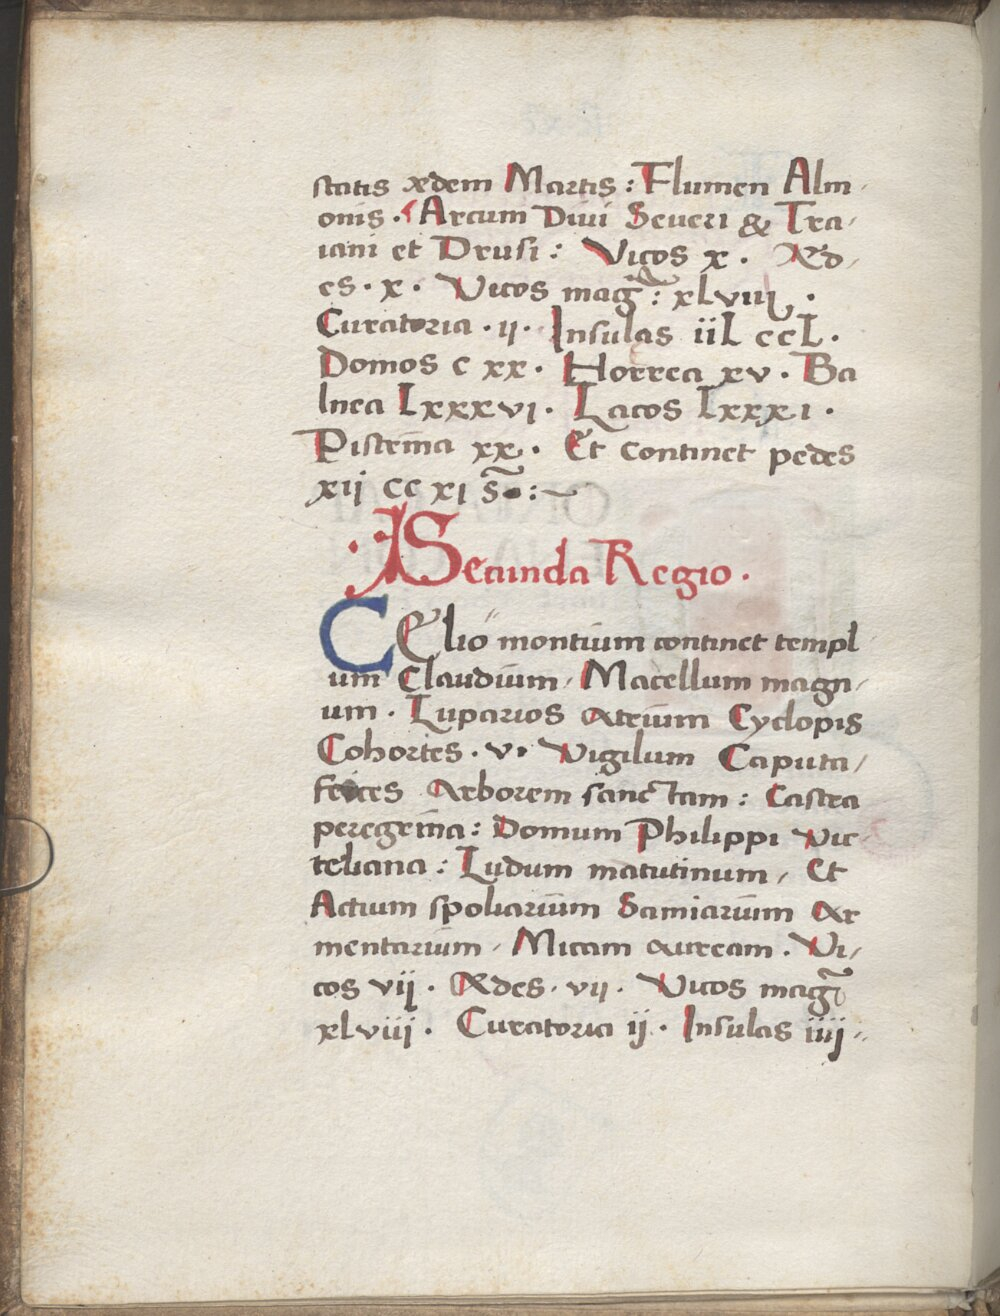 statis ædem Martis : Flumen Alm-
onis . Arcum Divi Severi & Tra-
iani et Drusi : Vicos x . Æd-
es . x . Vicos mag̃ : xLviii .
Curatoria . ii . Insulas iiL ccL .
Domos c xx . Horrea xv . Ba
lnea Lxxxvi . Lacos Lxxxi .
Pistrina xx . Et continet pedes
xii cc xi S̃ . : ~
Secunda Regio .
CElio montium continet templ-
um Claudium , Macellum magn-
um . Luparios atrium Cyclopis
Cohortes . v . Vigilum Caputa-
frices Arborem sanctam : Castra
peregrina : Domum Philippi Vic-
teliana : Ludum matutinum , Et
Actium spoliarium Samiarium Ar
mentarium , Micam auream . Vi-
cos vii . Ædes . vii . Vicos mag̃
xlviii . Curatoria ii . Insulas iiii -